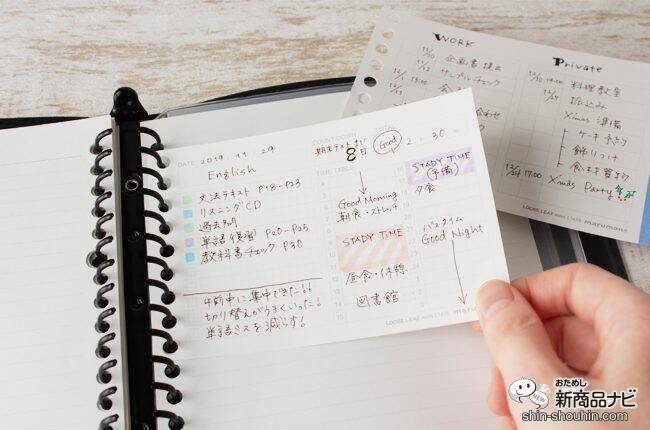 WORK
12/10 企画書提出
サンプルチェック
Private
12/10 14:00 料理教室
振込み
Xmas 準備
ケーキ予約
飾りつけ
12/24 17:00 X'mas Party
LOOSE LEAF mini L1435 maruman
DATE 2019. 11. 29
English
文法テキスト P18-P23
リスニングCD
過去問
単語復習 P20-P25
教科書チェック P30
午前中に集中できた!!
切り替えがうまくいった!
単語ミスを減らす!
COUNT DOWN
期末テストまで
8日
Good
TOTAL
2 : 30
TIME TABLE
Good Morning
朝食・ストレッチ
STADY TIME
昼食・休憩
図書館
STADY TIME
(予備)
夕食
バスタイム
Good Night
LOOSE LEAF mini L1433
おためし
新商品ナビ
NEW
shin-shouhin.com